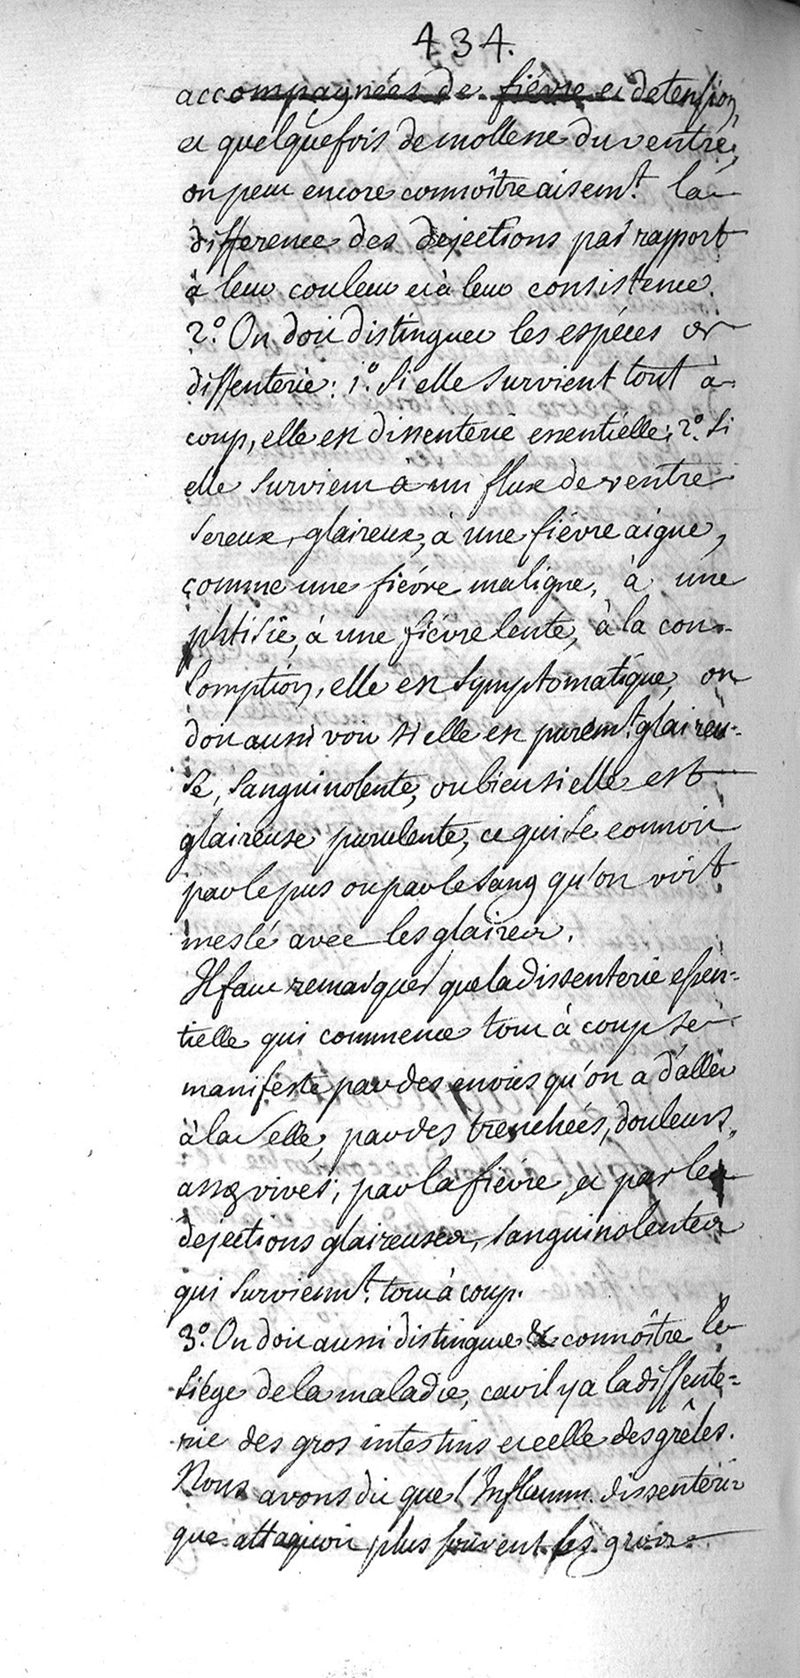 434.
accompagnées de fiévre et de tension,
et quelquefois de mollesse du ventre;
on peut encore connoître aisemt. la
difference des dejections par rapport
à leur couleur et à leur consistence.
2.° On doit distinguer les espéces de
dissenterie: 1.° Si elle survient tout à
coup, elle est dissenterie essentielle; 2.° si
elle survient à un flux de ventre
sereux, glaireux, à une fiévre aigue,
comme une fiévre maligne, à une
phtisie, à une fiévre lente, à la con-
somption, elle est symptomatique, on
doit aussi voir si elle est puremt. glaireu-
se, sanguinolente, ou bien si elle est
glaireuse purulente, ce qui se connoit
par le pus ou par le sang qu'on voit
meslé avec les glaires.
Il faut remarquer que la dissenterie essen-
tielle qui commence tout à coup se
manifeste par des envies qu'on a d'aller
à la selle, par des trenchées, douleurs
assez vives, par la fiévre, et par les
dejections glaireuses, sanguinolentes
qui surviennt. tout à coup.
3.° On doit aussi distinguer & connoître le
siége de la maladie, car il y a la dissente-
rie des gros intestins et celle des grêles.
Nous avons dit que l'Inflamm. dissenteri-
que attaquoit plus souvent les gros